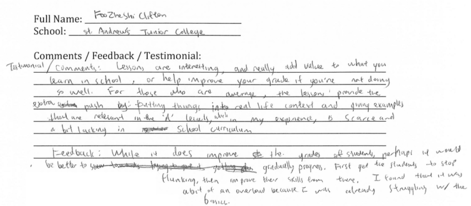 Full Name: Foo Zheshi Clifton
School: St. Andrew's Junior College
Comments / Feedback / Testimonial:
Testimonial / Comments: Lessons are interesting, and really add value to what you
learn in school, or help improve your grade if you're not doing
so well. For those who are average, the lessons provide the
extra push by putting things into real life context and giving examples
that are relevant in the 'A' levels, which in my experience, is scarce and
a bit lacking in school curriculum
Feedback: While it does improve the grades of students, perhaps it would
be better to gradually progress. First get the students to stop
flunking, then improve their skills from there. I found that it was
a bit of an overload because I was already struggling w/ the
basics.